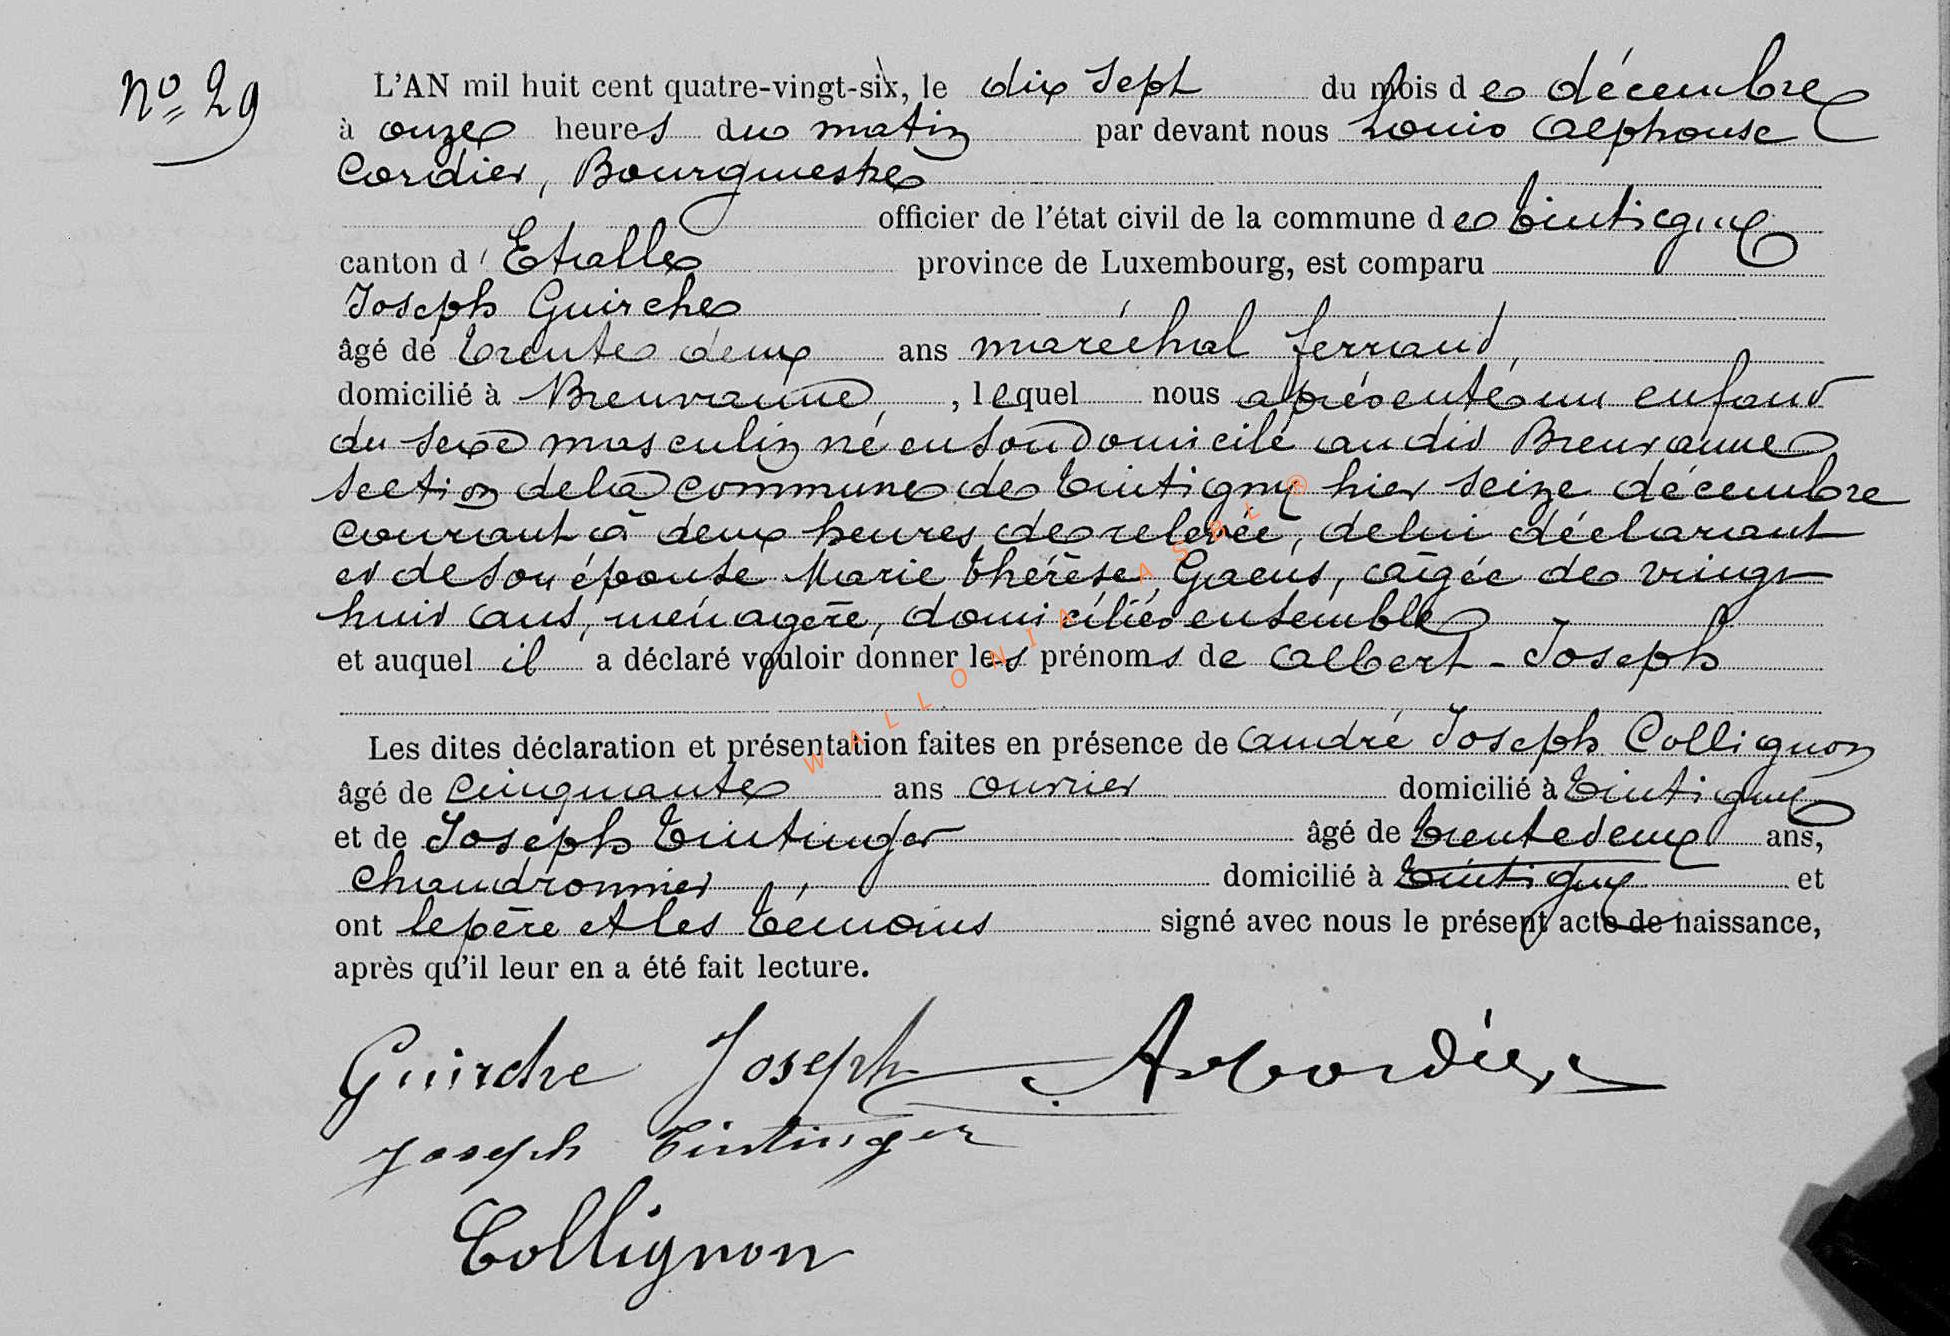 No 29
L'AN mil huit cent quatre-vingt-six, le dix sept du mois de décembre
à onze heures du matin par devant nous Louis Alphonse
Cordier, Bourgmestre
officier de l'état civil de la commune de Tintigny
canton d'Etalle province de Luxembourg, est comparu
Joseph Guirche
âgé de trente deux ans maréchal ferrand,
domicilié à Breuvanne, , lequel nous a présenté un enfant
du sexe masculin né en son domicile au dit Breuvanne
section de la commune de Tintigny hier seize décembre
courant à deux heures de relevée, de lui déclarant
et de son épouse Marie Thérèse Gaeus, âgée de vingt
huit ans, ménagère, domiciliés ensemble
et auquel il a déclaré vouloir donner les prénoms de Albert - Joseph
Les dites déclaration et présentation faites en présence de André Joseph Collignon
âgé de cinquante ans ouvrier domicilié à Tintigny
et de Joseph Tintinger âgé de trente deux ans,
chaudronnier domicilié à Tintigny et
ont le père et les témoins signé avec nous le présent acte de naissance,
après qu'il leur en a été fait lecture.
Guirche Joseph A Cordier
Joseph Tintinger
Collignon
WALLONIA ASBL ®